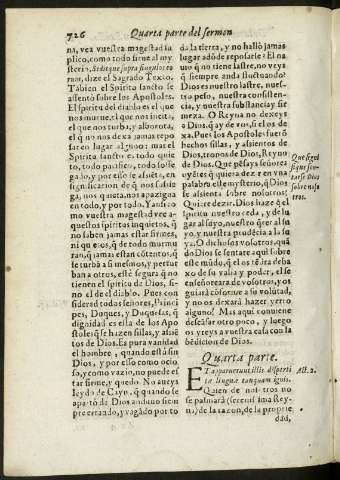 726
Quarta parte del sermon
na, vea vuestra magestad su
plico, como todo tiene al my
sterio, Seditque supra singulos eo
rum, dize el Sagrado Texto.
Tãbien el Spiritu sancto se
assentò sobre los Apostoles.
El spiritu del diablo es el que
nos mueue, el que nos incita,
el que nos turba, y alborota,
el q̃ no nos dexa jamas repo
sar en lugar alguno: mas el
Spiritu sancto es todo quie
to, todo pacifico, todo sosse
gado, y por esso se assieta, en
significacion de q̃ nos sossie
ga, nos quieta, nos apazigua
en todo, y por todo. Y ansi co
mo vuestra magestad vee a-
questos spiritus inquietos, q̃
no saben jamas estar firmes,
ni quietos, q̃ de todo murmu
ran, q̃ jamas estan cõtentos, q̃
se turbã a si mesmos, y pertur
ban a otros, estè segura q̃ no
tienen el spiritu de Dios, si-
no el de el diablo. Pues con
siderad todos Señores, Princi
pes, Duques, y Duquesas, q̃
dignidad es esta de los Apo
stoles q̃ se hazen sillas, y assie
tos de Dios. Es pura vanidad
el hombre, quando està sin
Dios, y por esso como ocio
sa, y como vazio, no puede es
tar firme, y quedo. No aueys
leydo de Cayn, q̃ quando se
apartò de Dios anduuo siem
pre errando, y vagãdo por to
da la tierra, y no hallò jamas
lugar adõde reposarse? El na
uio q̃ no tiene lastre, no veys
q̃ siempre anda fluctuando?
Dios es nuestro lastre, nues-
tro peso, nuestra consisten-
cia, y nuestra substancia y fir
meza. O Reyna no dexeys
a Dios, q̃ ay de vos, si el os de
xa. Pues los Apostoles fuerõ
hechos sillas, y assientos de
Dios, tronos de Dios, Reyno
de Dios. Que pẽsays señores
vosotros q̃ quiera dezir en vna
palabra este mysterio, q̃ Dios
se assiente sobre nosotros?
Quiere dezir, Dios haze q̃ el
spiritu nuestro ceda, y de lu-
gar al suyo, nuestro q̃rer al su
yo, y nuestra prudẽcia a la su
ya. O dichosos vosotros, quã
do Dios se sentare aqui sobre
este mũdo, q̃ el os tẽdra deba
xo de su valia y poder, el se
enseñoreara de vosotros, y os
guiarà cõforme a su volũtad,
y no os dexarà hazer yerro
alguno! Mas aqui conuiene
descansar otro poco, y luego
os yreys a vuestra casa con la
bẽdicion de Dios.
Que significa que se sentasse Dios sobre nosotros.
Quarta parte.
Act. 2.
ET apparuerunt illis dispertitæ linguæ tanquam ignis.
Quien de nosotros no
se pasmarà (serenissima Rey-
na) de la razon, de la proprie
dad,